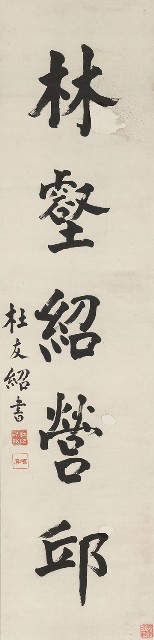 林壑紹營邱
杜友紹書